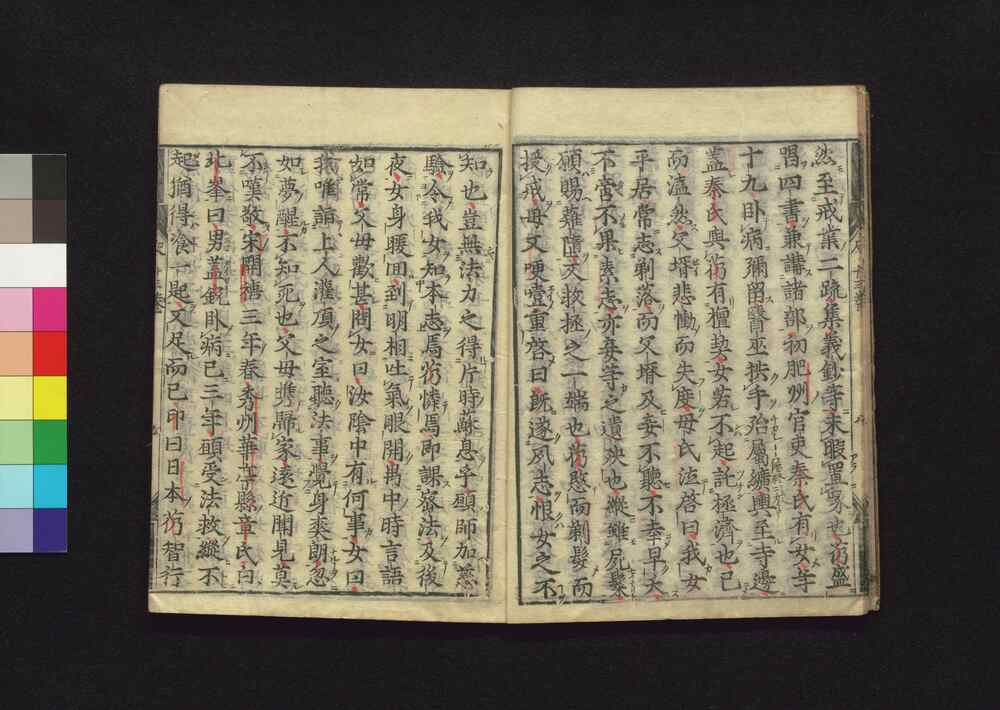 然至戒業二疏集義鈔等未暇置家也芿盛
唱四書兼講諸部初肥州官吏秦氏有女年
十九卧病彌留醫巫拱手殆屬纊輿至寺邊
蓋秦氏與芿有檀契女若不起託極濟也已
而溘然父壻悲慟而失度母氏泣啓曰我女
平居常志剃落而父壻及妾不聽不幸早夭
不啻不果素志亦妾等之遺殃也縱雖死聚
願賜薙染又救拯之一端也芿愍而剃髮而
授戒母又哽壹重啓曰既遂夙志恨女之不
知也豈無法力之得片時蘇息乎願師加慈
驗令我女知本志焉芿憐焉即課密法及後
夜女身暖回到明相吐氣眼開禺中時言語
如常父母歡甚問女曰汝陰中有何事女曰
我唯詣上人灌頂之室聽法事覺身爽朗忽
如夢醒不知死也父母携歸家遠近聞見莫
不嘆敬宋開禧三年春秀州華亭縣章氏白
北峯曰男蓋銳卧病已三年頭受法救縱不
起猶得飡一匙又足而已印曰日本芿智行